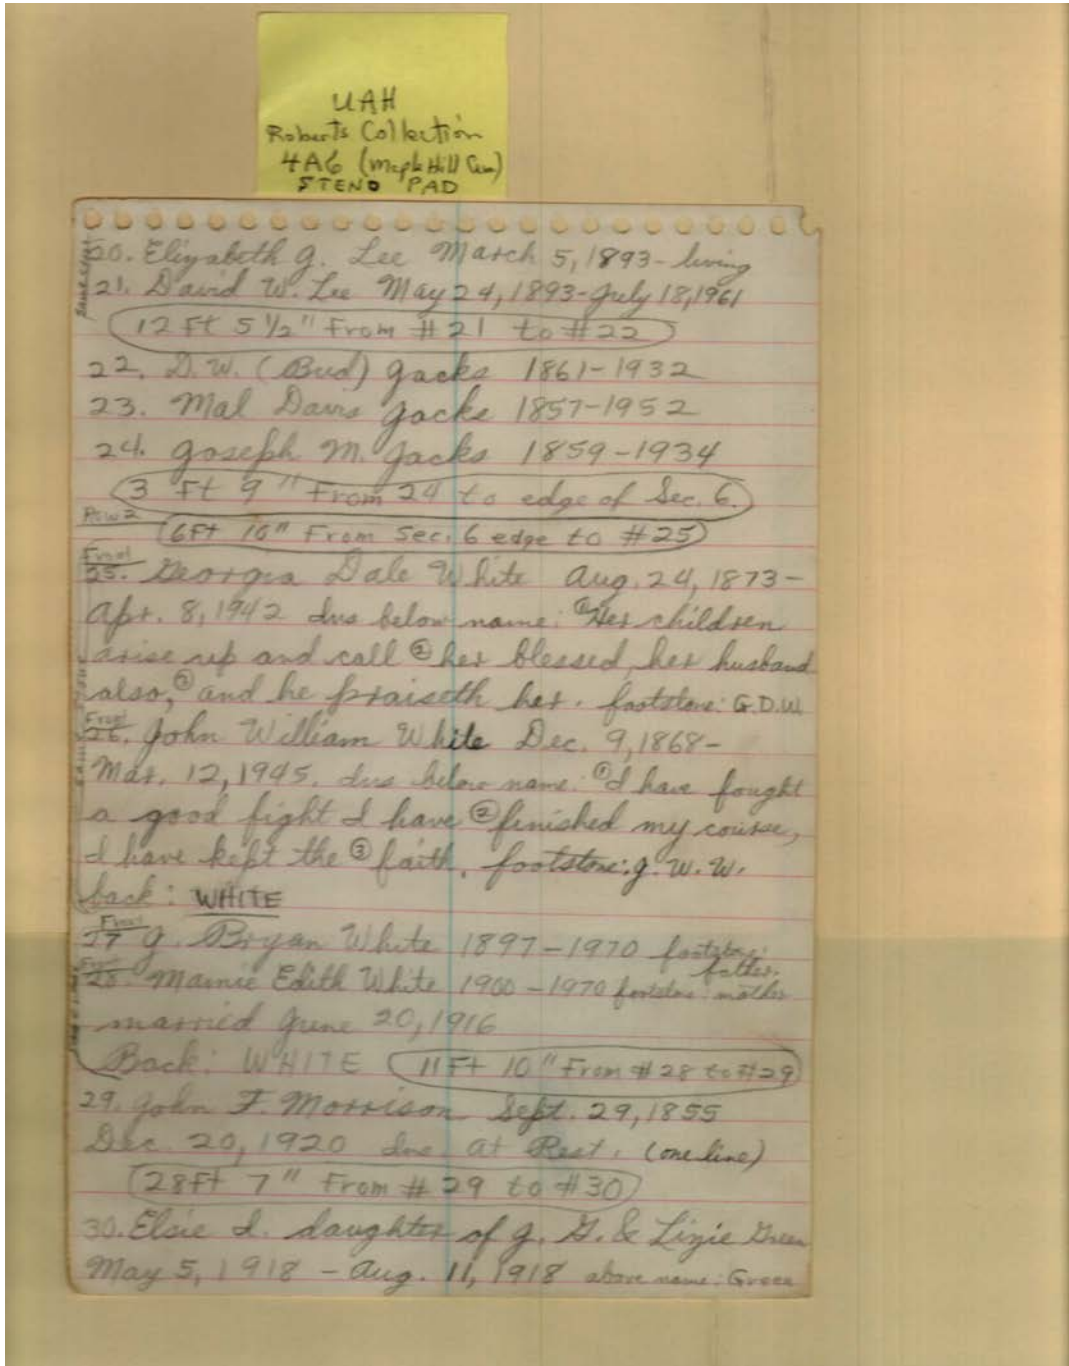 UAH
Roberts Collection
4A6 (Maple Hill Cem)
STENO PAD
20. Elizabeth J. Lee March 5, 1893 - living
21. David W. Lee May 24, 1893 - July 18, 1961
12 Ft 5 1/2" From #21 to #22
22. D. W. (Bud) Jacks 1861-1932
23. Mal Davis Jacks 1857-1952
24. Joseph M. Jacks 1859-1934
3 Ft 9" From 24 to edge of Sec. 6.
Row 2
6Ft 10" From Sec. 6 edge to #25
Front
25. Georgia Dale White Aug. 24, 1873 -
Apr. 8, 1942 ins below name: ① Her children
arise up and call ② her blessed, her husband
also, ③ and he praiseth her. footstone: G.D.W.
Front
26. John William White Dec. 9, 1868 -
Mar. 12, 1945. ins below name: ① I have fought
a good fight I have ② finished my course,
I have kept the ③ faith. footstone: J. W. W.
back: WHITE
Front
27 J. Bryan White 1897-1970 footstone:
father.
28. Mamie Edith White 1900-1970 footstone: mother
married June 20, 1916
Back: WHITE 11Ft 10" From #28 to #29
29. John F. Morrison Sept. 29, 1855
Dec. 20, 1920 ins. At Rest. (one line)
28Ft 7" From #29 to #30
30. Elsie I. daughter of J. G. & Lizie Green
May 5, 1918 - Aug. 11, 1918 above name: Green